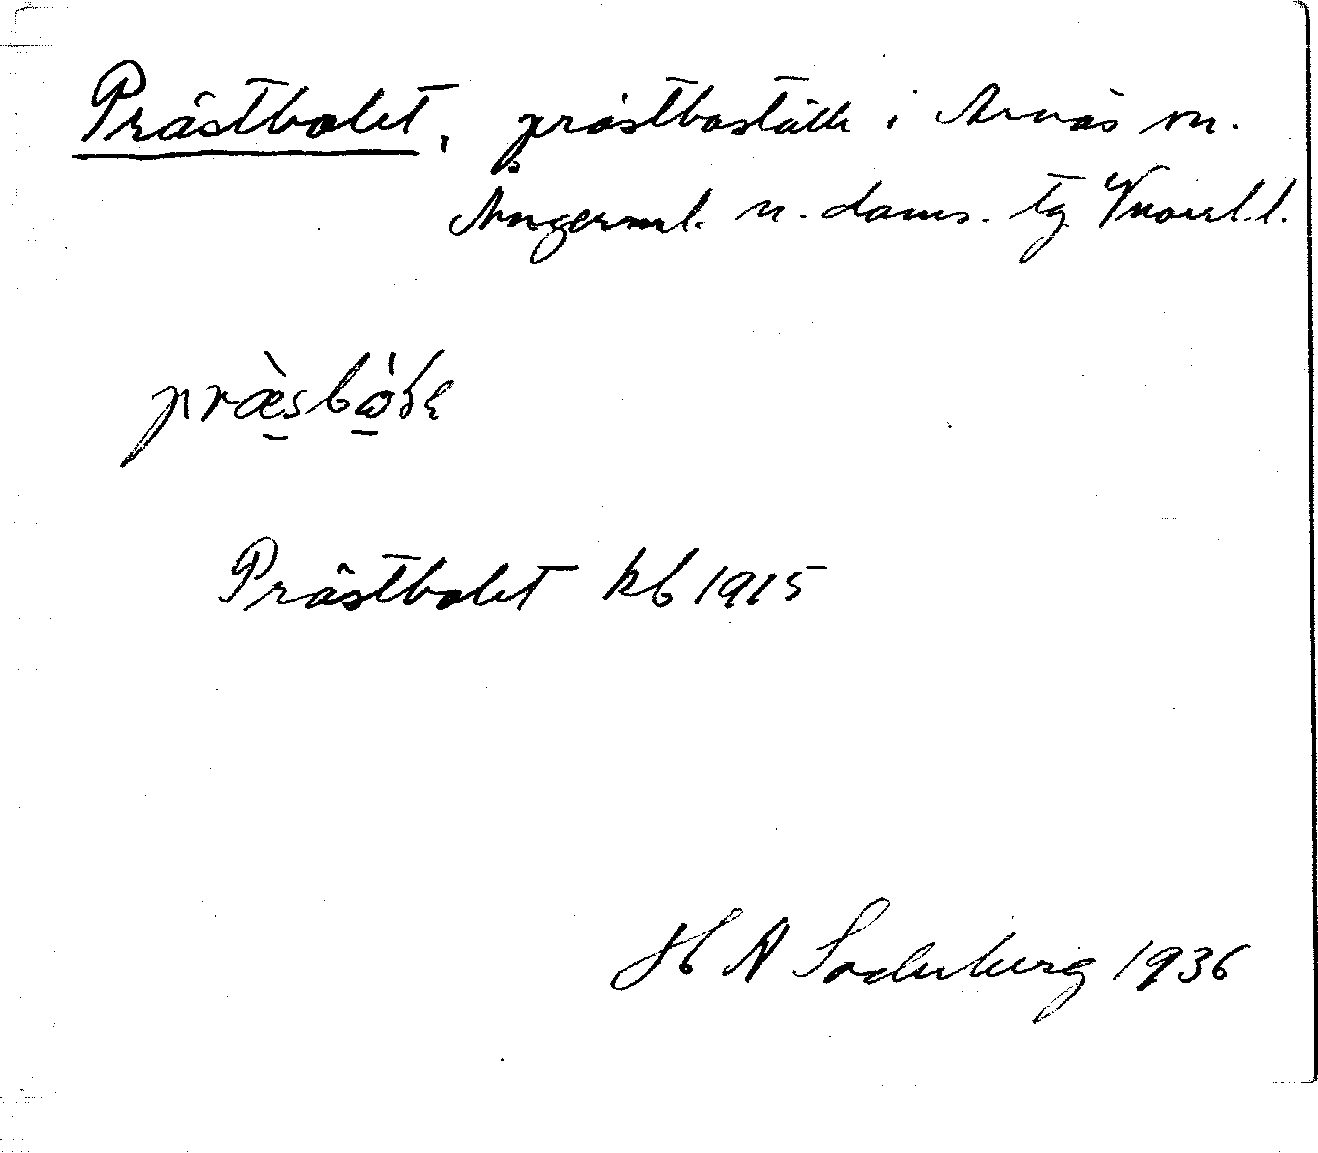 Prästbolet, prästboställe i Arnäs sn.
Ångerml. n. doms. tg Vnorrl. l.
præ̀sbὼ
Prästbolet kb 1915
H A Söderberg 1936